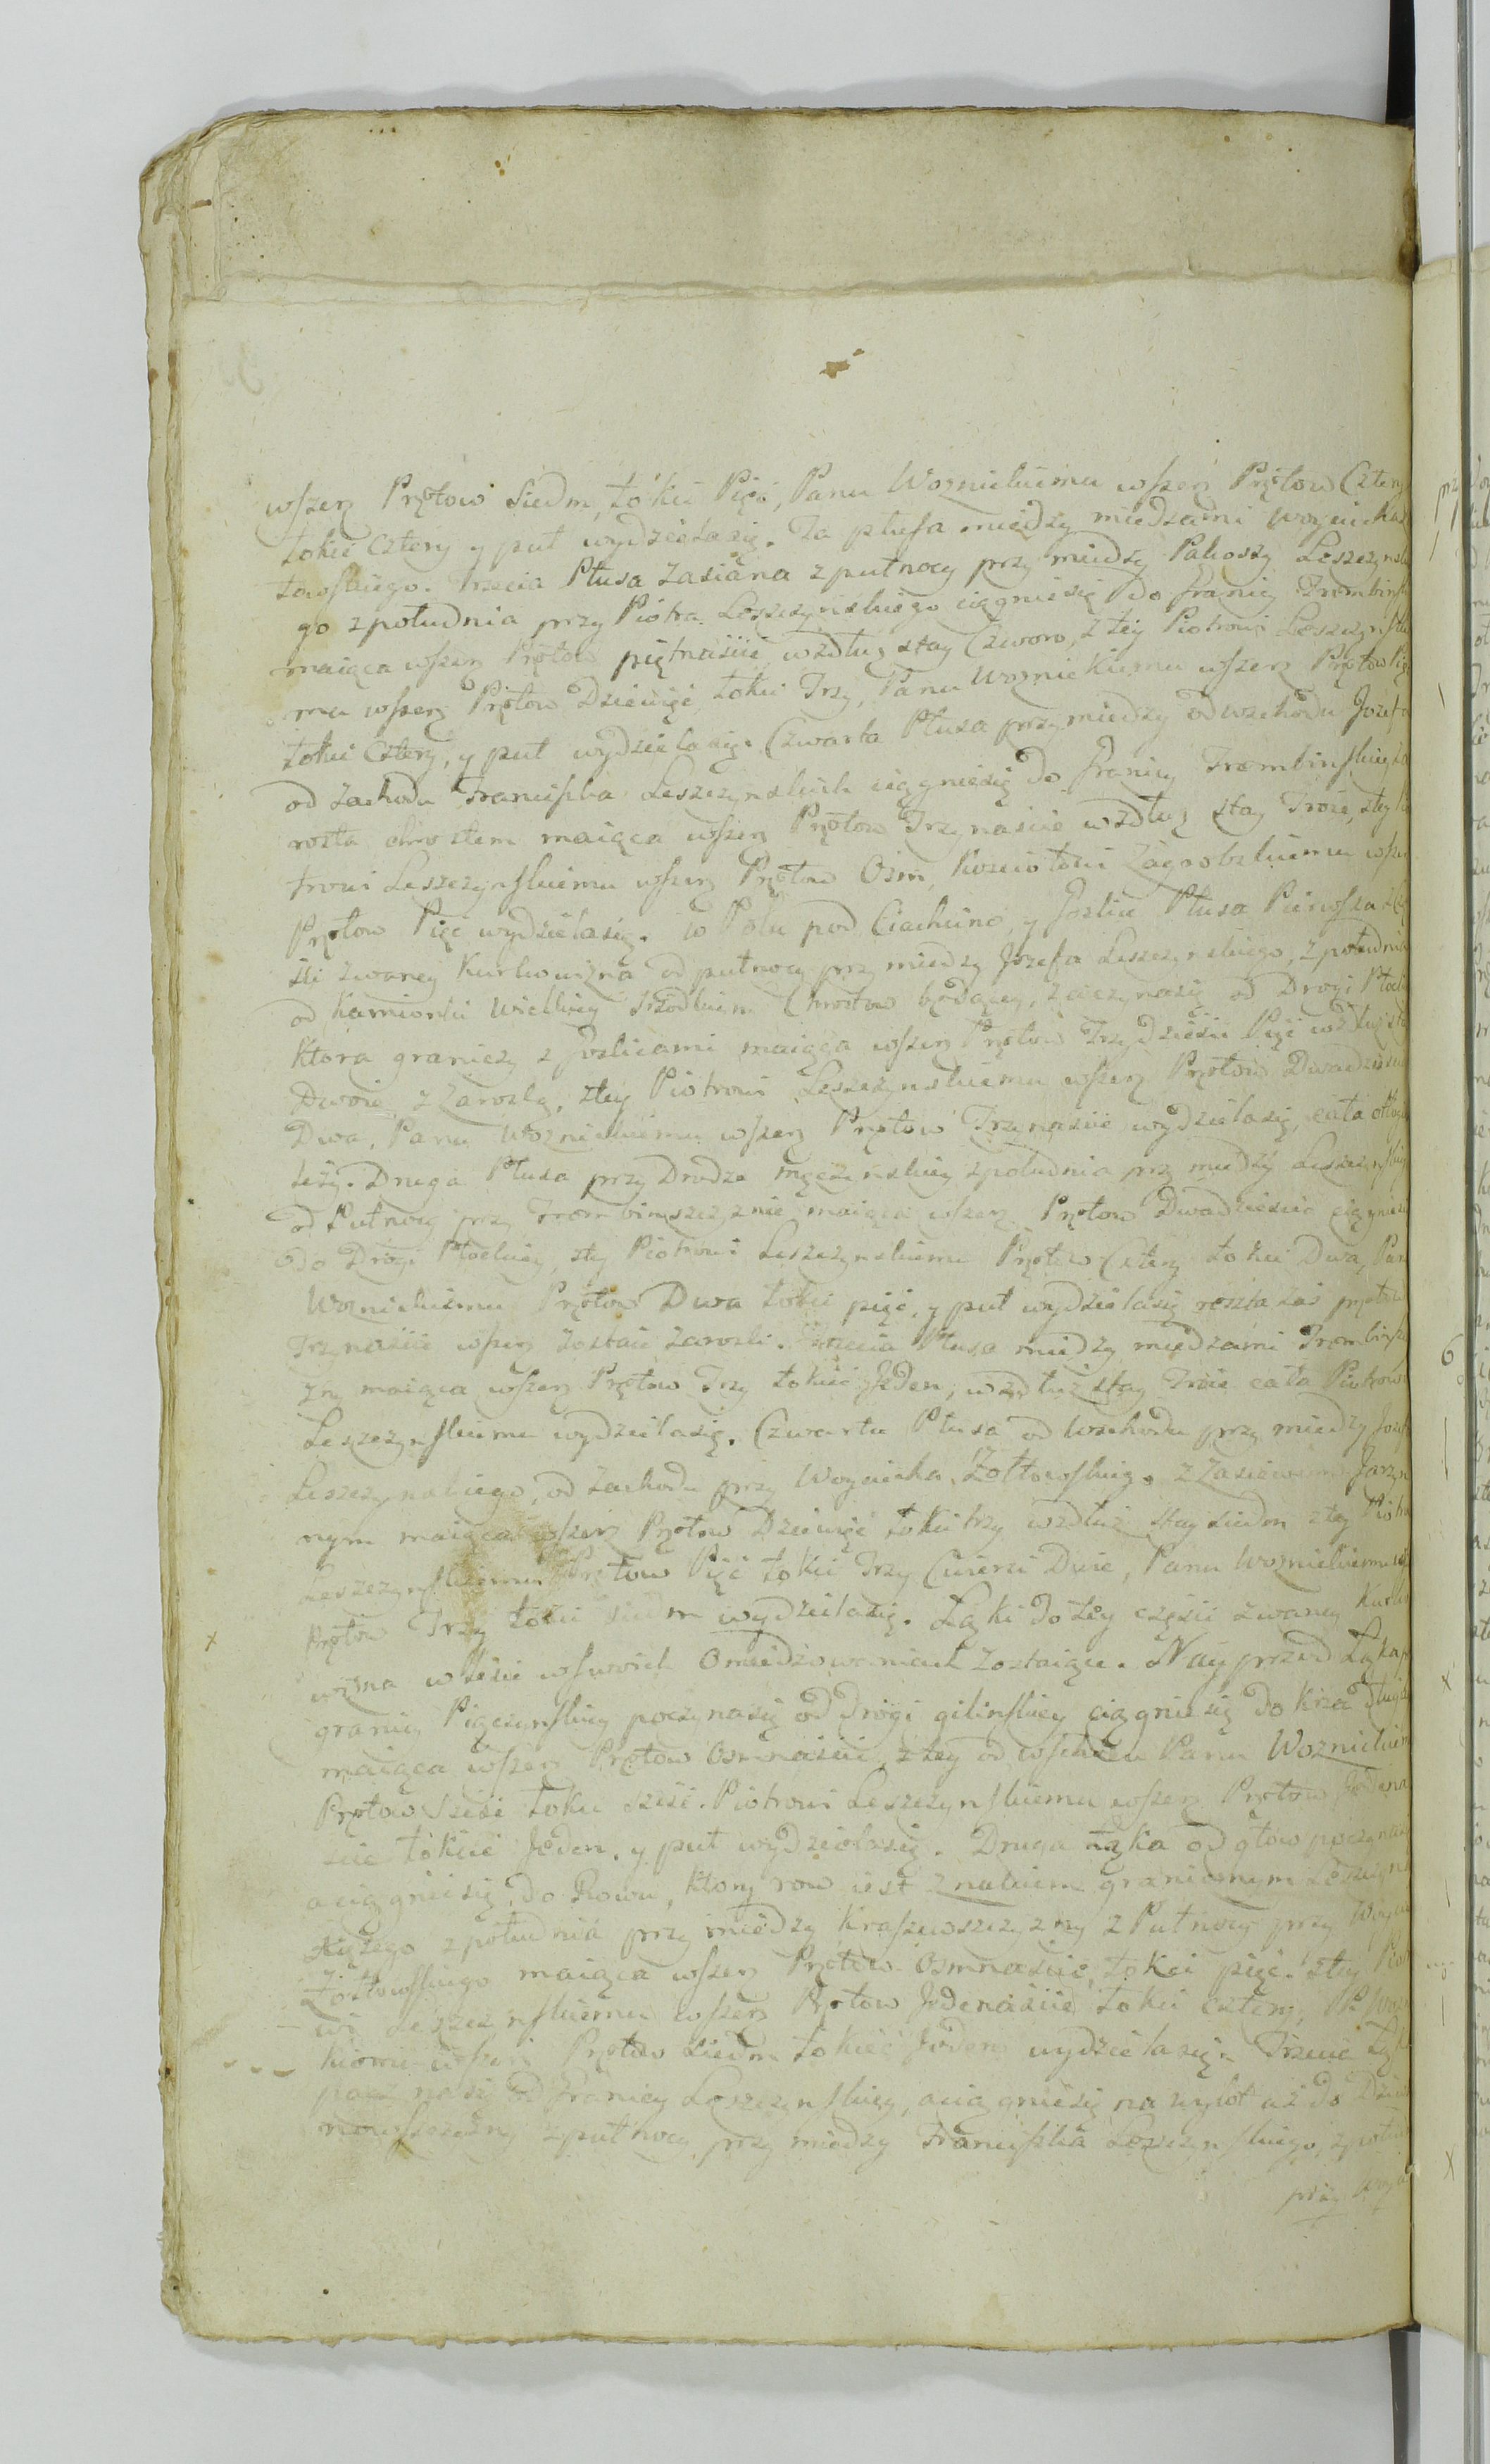 wszerz Prętow Siedm, łokci Pięć, Panu Woznickiemu wszerz Prętow Cztery
łokci Cztery y puł wydzieła się. Ta płusa między miedzami Woyciecha
towskiego. Trzecia Płusa Zasiana z pułnocy przy miedzy Pakoszy Leszczynskie
go z południa przy Piotra Leszczynskiego ciągnie się do Granicy Trembinski
maiąca wszerz Prętow piętnaście, wzdłuż stay Czworo, z tey Piotrowi Leszczynskie
mu wszerz Prętow Dziewięć łokci Trzy, Panu Woznickiemu wszerz Prętow Pięć
łokci Cztery, y puł wydziela się. Czwarta Płusa przy miedzy od wschodu Jozefa
od Zachodu Franciszka Leszczynskich ciągnie się do Granicy Trembinskiey Za
rosła chrostem maiąca wszerz Prętow Trzynaście wzdłuż stay Troie, z tey Pio
trowi Leszczynskiemu wszerz Prętow Osm, Kosciołowi Zagrobskiemu wsze
Prętow Pięć wydziela się. W Polu pod Ciachcino, y Goslice Płusa Pierwsza z Czę
ści zwaney Kurkowizna od pułnocy przy miedzy Jozefa Leszczynskiego, z południa
od Kamionki Wielkiey srzodkiem Chrostow będącey, zaczyna się od Drogi Płocki
Ktora graniczy z Goslicami maiąca wszerz Prętow Trzydzieści Pięć wzdłuż sta
Dwoie, z Zarosłą, z tey Piotrowi Leszczynskiemu wszerz Prętow Dwadzieścia
Dwa, Panu Woznickiemu wszerz Prętow Trzynaście wydziela się, cała odłog
leży. Druga Płusa przy Drodze męczynskiey z południa przy miedzy Leszczynskiey
od Pułnocy przy Trombinszczyznie maiąca wszerz Prętow Dwadzieście ciągnie się
do Drogi Płockiey, z tey Piotrowi Leszczynskiemu Prętow Cztery łokci Dwa, Panu
Woznickiemu Prętow Dwa łokci pięć, y puł wydziela się reszta zaś prętow
Trzynaście wszerz zostaie Zarosli. Trzecia Płusa między miedzami Trombinszc
zny maiąca wszerz Prętow Trzy łokieć Jeden, wzdłuż stay Troie cała Piotrowi
Leszczynskiemu wydziela się. Czwarta Płusa od Wschodu przy miedzy Jozefa
Leszczynskiego, od Zachodu przy Woyciecha Żołtowskiego z Zasiewem Jarzy
nym maiąca wszerz Prętow Dziewięć łokci trzy wzdłuż stay siedm z tey Piotro
Leszczynskiemu Prętow Pięć łokci Trzy Cwierci Dwie, Panu Woznickiemu
Prętow Trzy łokci siedm wydziela się. Łąki do tey części zwaney Kurko
wizna w Lesie w swoich Omiedzowaniach zostaiące. Nay przod Łąka
granicy Pięczynskiey poczyna się od Drogi gilinskiey ciągnie się do Krza Długi
maiąca wszerz Prętow Osmnaście, z tey od wschodu Panu Woznickiem
Prętow Sześć łokci sześć. Piotrowi Leszczynskiemu wszerz Prętow Jedena
ście łokieć Jeden, y puł wydziela się. Druga Łąka od głow poczyna
a ciągnie się do Rowu, ktory row iest znakiem granicznym Leszczyna
Księżego z południa przy miedzy Kraszewszczyzny z Pułnocy przy Woycie
Żołtowskiego maiąca wszerz Prętow Osmnaście, łokci pięć. z tey Piotro
wi Leszczynskiemu wszerz Prętow Jedenaście łokci cztery, P. Wozni
kiemu wszerz Prętow Siedm łokieć Jeden wydziela się. Trzecia Łąka
poczyna się od Granicy Leszczynskiey, a ciągnie się na wylot aż do
nowszczyzny z pułnocy przy miedzy Franciszka Leszczynskiego, z połud
przy Woycie